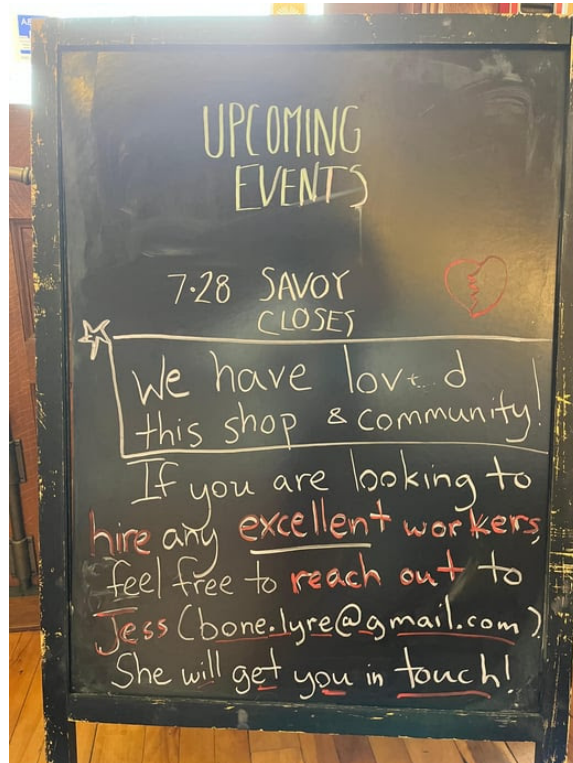 UPCOMING
EVENTS
7·28 SAVOY
CLOSES
We have loved
this shop & community!
If you are looking to
hire any excellent workers,
feel free to reach out to
Jess (bone.lyre@gmail.com)
She will get you in touch!